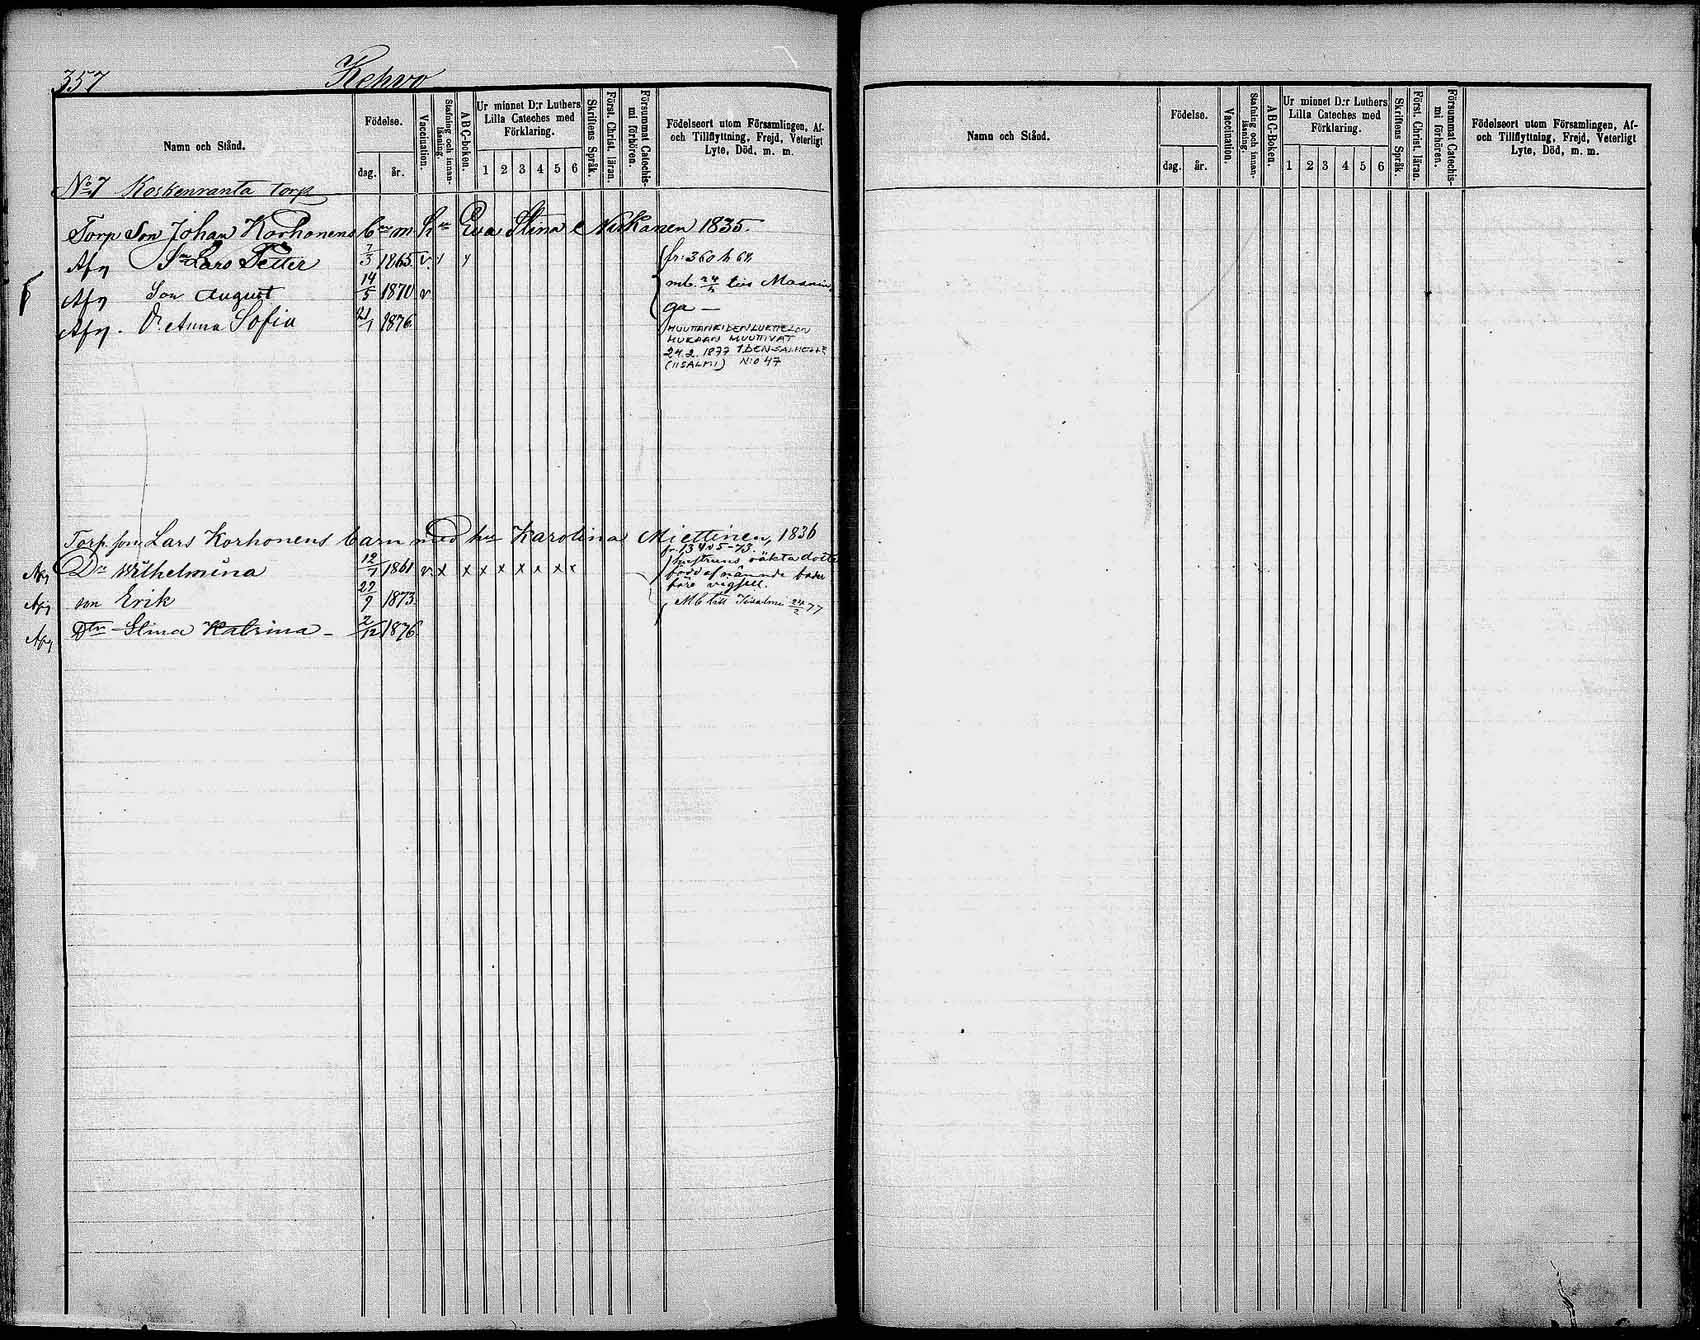 357 Kehvo
Namn och Stånd.
Födelse.
dag.
år.
Vaccination.
Stafning och innan-
läsning.
ABC-boken.
Ur minnet D:r Luthers
Lilla Cateches med
Förklaring.
1 2 3 4 5 6
Skriftens Språk.
Först. Christ. läran.
Försummat Catechis-
mi förhören.
Födelseort utom Församlingen, Af-
och Tillflyttning, Frejd, Veterligt
Lyte, Död, m. m.
No 7 Koskenranta torp
Torp Son Johan Korhonens bn m. Hu Eva Stina Niskanen 1835.
Afg Sn Lars Petter 7/3 1865 v fr: 360 b 68
Afg Son August 14/5 1870 v mb. 24/2 till Maanin
ga —
Afg. Dr Anna Sofia 21/1 1876
MUUTTANEIDEN LUETTELON
MUKAAN MUUTTIVAT
24.2.1877 IDENSALMELLE
(IISALMI) N:O 47
Torp. son Lars Korhonens barn med hu Karolina Miettinen, 1836
Afg Dr Wilhelmina 12/7 1861 v x x x x x x x x
hustruns oäkta dotter
född af nämnde fader
före vigsell.
Afg son Erik 22/9 1873 Mb till Idensalmi 24/2 77
Afg Dtr Stina Katrina 2/12 1876
Namn och Stånd.
Födelse.
dag.
år.
Vaccination.
Stafning och innan-
läsning.
ABC-boken.
Ur minnet D:r Luthers
Lilla Cateches med
Förklaring.
1 2 3 4 5 6
Skriftens Språk.
Först. Christ. läran.
Försummat Catechis-
mi förhören.
Födelseort utom Församlingen, Af-
och Tillflyttning, Frejd, Veterligt
Lyte, Död, m. m.